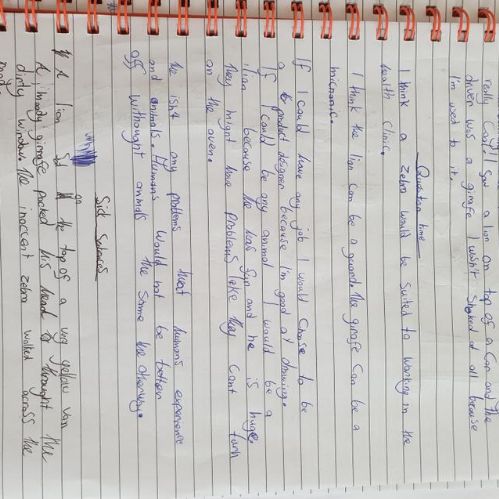 really cool I saw a lion on top of a car and the
driver was a girafe I wasn't shoked at all because
I'm used to it.
Question time
I think a zebra would be suited to working in the
health clinic.
I think the lion can be a guard the girafe can be a
micranic.
If I could have any job I would choose to be
a product designer because I'm good at drawing.
If I could be any animal I would be a
lion because he has fun and he is huge.
they might have problems like they cant turn
on the oven.
the isn't any problems that humans experience
and animals. Humans would not be better
off withought animals the same the otherway.
Sid Sentances
A lion sat at the top of a very yellow van
A moody girafe poked his head throught the
dirty window the inoccent zebra walked across the